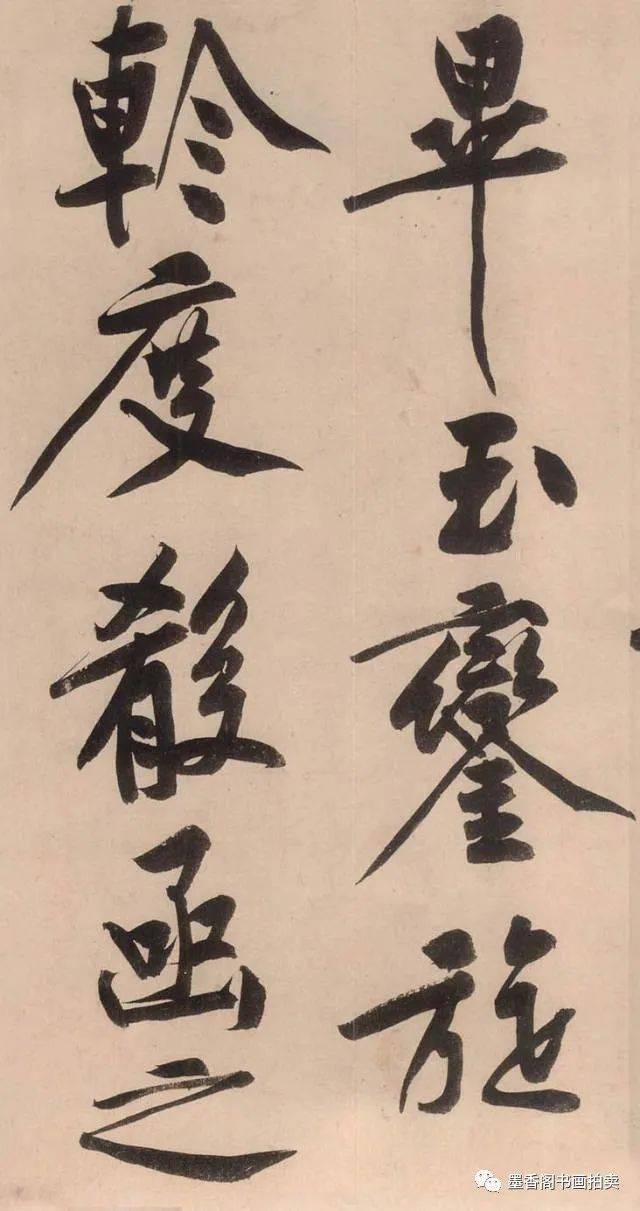 畢玉鑾旋
軫度殽函之
墨香阁书画拍卖